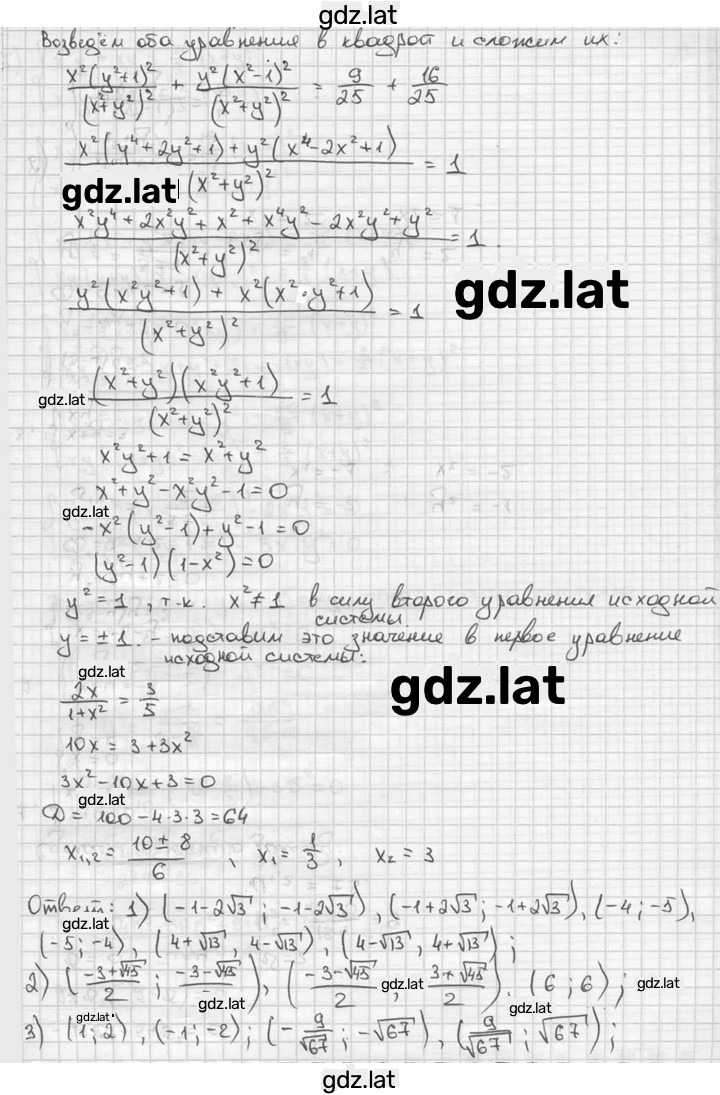 gdz.lat
Возведём оба уравнения в квадрат и сложим их:
x²(y²+1)²/(x²+y²)² + y²(x²-1)²/(x²+y²)² = 9/25 + 16/25
(x²(y⁴+2y²+1)+y²(x⁴-2x²+1))/(x²+y²)² = 1
gdz.lat
(x²y⁴+2x²y²+x²+x⁴y²-2x²y²+y²)/(x²+y²)² = 1.
gdz.lat
(y²(x²y²+1) + x²(x²·y²+1))/(x²+y²)² = 1
(x²+y²)(x²y²+1)/(x²+y²)² = 1
gdz.lat
x²y²+1 = x²+y²
x²+y²-x²y²-1=0
gdz.lat
-x²(y²-1)+y²-1=0
(y²-1)(1-x²)=0
y²=1, т.к. x²≠1 в силу второго уравнения исходной
системы.
y=±1. - подставим это значение в первое уравнение
исходной системы:
gdz.lat
gdz.lat
2x/(1+x²) = 3/5
10x = 3+3x²
3x²-10x+3=0
gdz.lat
D = 100-4·3·3=64
x₁,₂ = (10±8)/6, x₁ = 1/3, x₂ = 3
Ответ: 1) (-1-2√3; -1-2√3), (-1+2√3; -1+2√3), (-4; -5),
gdz.lat
(-5; -4), (4+√13, 4-√13), (4-√13, 4+√13);
2) ((-3+√45)/2; (-3-√45)/2), ((-3-√45)/2, (3+√45)/2). (6; 6);
gdz.lat
gdz.lat
gdz.lat
3) (1; 2), (-1; -2); (-9/√67; -√67), (9/√67; √67);
gdz.lat
gdz.lat